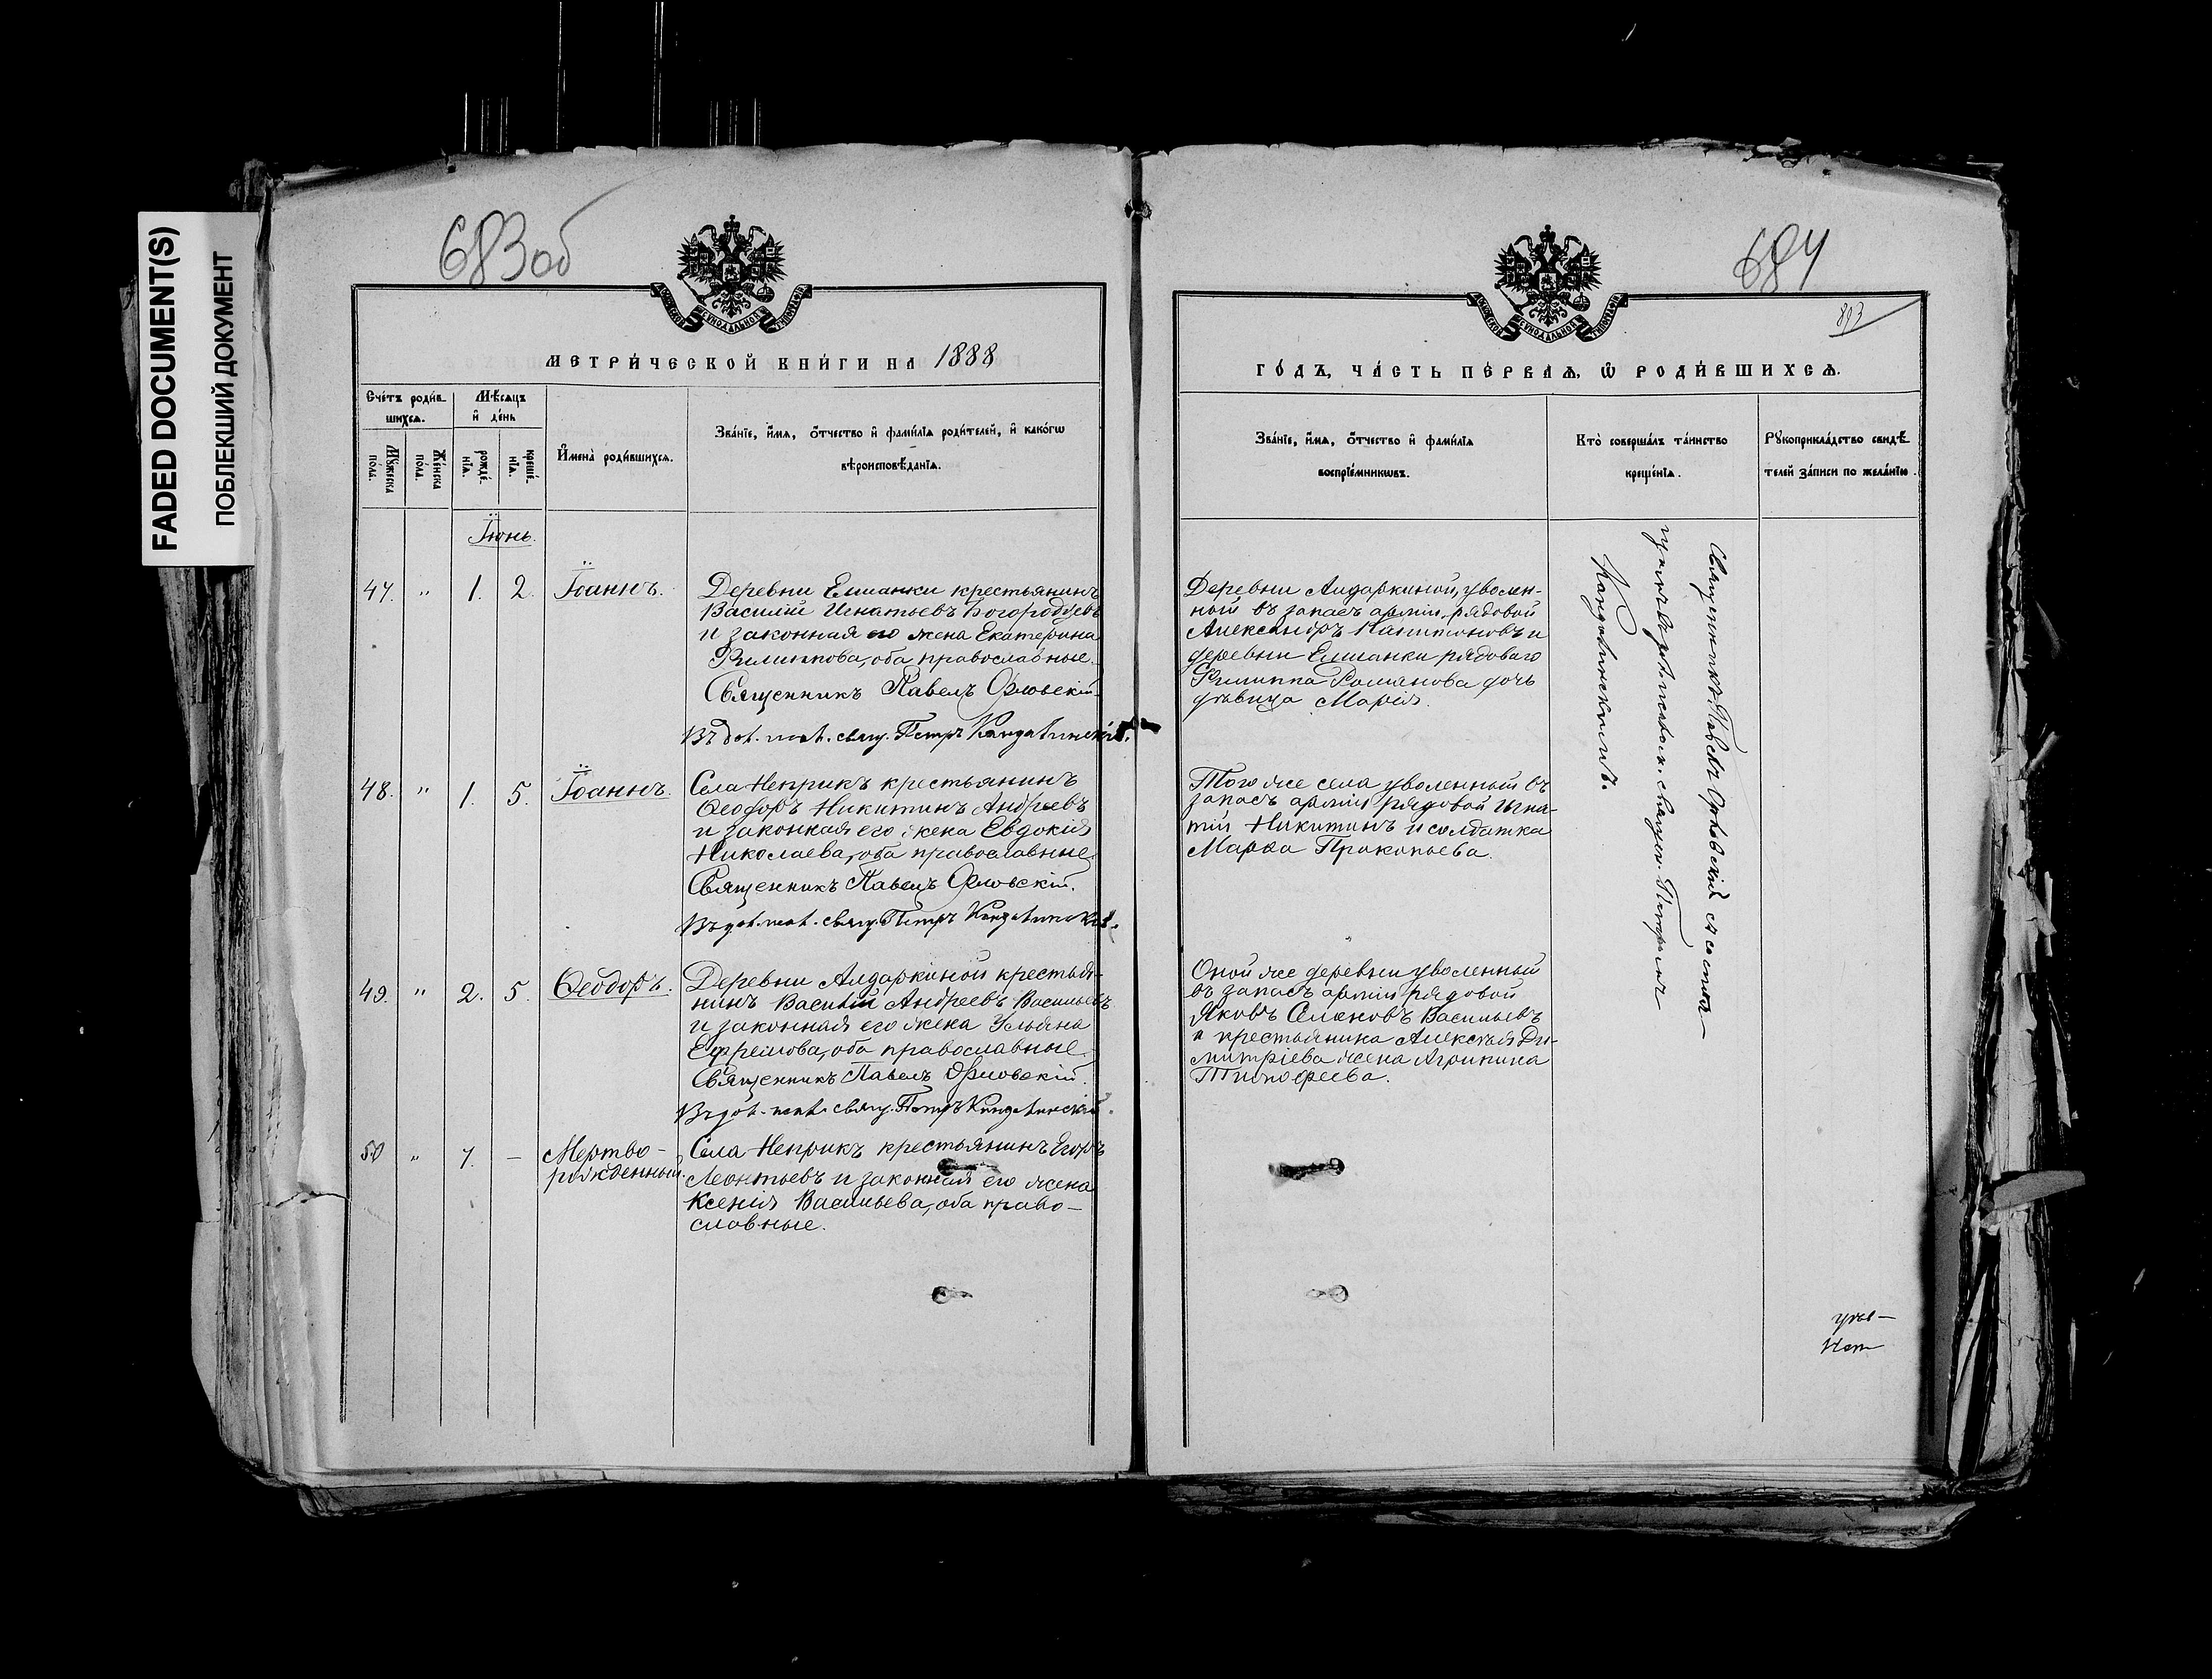 FADED DOCUMENT(S)
ПОБЛЕКШИЙ ДОКУМЕНТ
683об
МЕТРИ́ЧЕСКОЙ КНИ́ГИ НА 1888
Сче́тъ роди́в-
шихсѧ.
Мꙋ́жеска
по́ла.
Же́нска
по́ла.
Мѣ́сѧцъ
и҆ де́нь
рожде́-
нїѧ.
креще́-
нїѧ.
И҆мена̀ роди́вшихсѧ.
Зва́нїе, и҆́мѧ, ѻ҆́тчество и҆ фами́лїѧ роди́телей, и҆ како́гѡ
вѣроисповѣ́данїѧ.
Іюнь.
47. " 1. 2. Іоаннъ.
Деревни Елшанки крестьянинъ
Василій Игнатьевъ Богородцевъ
и законная его жена Екатерина
Филиппова, оба православные.
Священникъ Павелъ Орловскій.
свящ. Петръ Кандалинскій.
48. " 1. 5. Іоаннъ.
Села Неприкъ крестьянинъ
Ѳеодоръ Никитинъ Андреевъ
и законная его жена Евдокія
Николаева, оба православные.
Священникъ Павелъ Орловскій.
свящ. Петръ Кандалинскій.
49. " 2. 5. Ѳеодоръ.
Деревни Алдаркиной крестья-
нинъ Василій Андреевъ Васильевъ
и законная его жена Ульяна
Ефремова, оба православные.
Священникъ Павелъ Орловскій.
свящ. Петръ Кандалинскій.
50 " 7. — Мертво-
рожденный.
Села Неприкъ крестьянинъ Егоръ
Леонтьевъ и законная его жена
Ксенія Васильева, оба право-
славные.
684
893
ГО́ДЪ, ЧА́СТЬ ПЕ́РВАѦ, Ѽ РОДИ́ВШИХСѦ.
Зва́нїе, и҆́мѧ, ѻ҆́тчество и҆ фами́лїѧ
воспрїе́мникѡвъ.
Кто̀ соверша́лъ та́инство
креще́нїѧ.
Рꙋкоприкла́дство свидѣ́-
телей за́писи по жела́нїю.
Деревни Алдаркиной, уволен-
ный въ запасъ арміи рядовой
Александръ Капитоновъ и
деревни Елшанки рядоваго
Филиппа Романова дочь
дѣвица Марія.
Того же села уволенный въ
запасъ арміи рядовой Игна-
тій Никитинъ и солдатка
Марѳа Прокопьева.
Оной же деревни уволенный
въ запасъ арміи рядовой
Яковъ Семеновъ Васильевъ
и крестьянина Алексѣя Ди-
митріева жена Агрипина
Тимофеева.
Священникъ Павелъ Орловскій съ
священ. Петромъ
Кандалинскимъ.